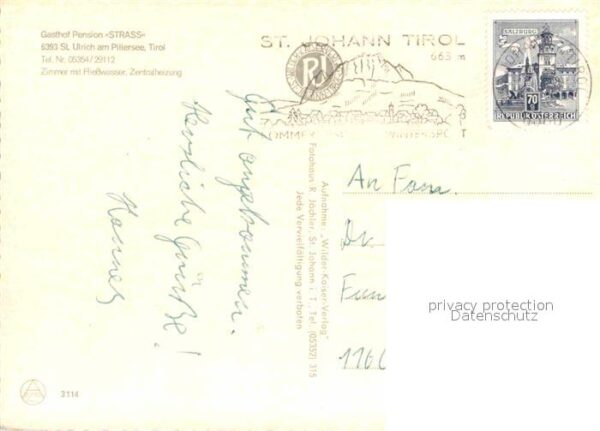 Gasthof Pension »STRASS«
6393 St. Ulrich am Pillersee, Tirol
Tel. Nr. 05354/29112
Zimmer mit Fließwasser, Zentralheizung
ST. JOHANN TIROL
663 m
SALZBURG
70
REPUBLIK ÖSTERREICH
Gut angekommen.
Herzliche Grüße!
Hannes
Aufnahme: „Wilder-Kaiser-Verlag"
Fotohaus R. Jöchler, St. Johann i. T., Tel. (05352) 315
Jede Vervielfältigung verboten
An Fam.
Dr.
1160
privacy protection
Datenschutz
3114